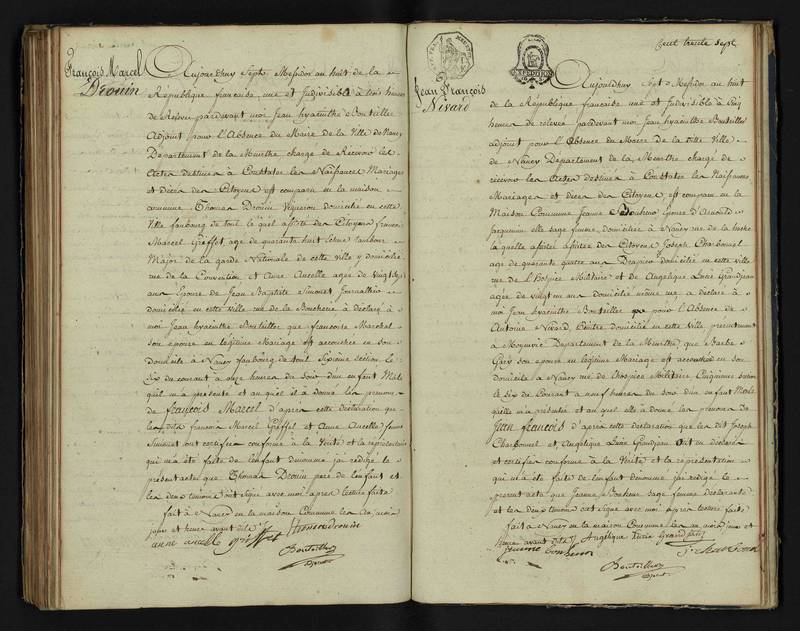 François Marcel
Drouin
Aujourdhuy Sept Messidor an huit de la
République française une et Indivisible à trois heures
de Relevée pardevant moi Jean hyacinthe Bouteiller
Adjoint pour l'Absence du Maire de la Ville de Nancy
Departement de la Meurthe chargé de Recevoir les
Actes destinés à Constater les Naissances Mariages
et décès des Citoyens est comparu en la maison
commune Thomas Drouin Vigneron domicilié en cette
Ville faubourg de toul le quel assisté des Citoyens françois
Marcel Griffet agé de quarante huit tambour
Major de la garde Nationale de cette ville y domicilié
rue de la Convention et Anne Aucelle agée de vingt
ans Epouse de Jean Baptiste Simonet Journallier
domicilié en cette ville rue de la Boucherie à déclaré à
moi Jean hyacinthe Bouteiller que françoise Marchal
son épouse en legitime Mariage est accouchée en son
domicile à Nancy faubourg de toul Sixieme section le
Six du courant à onze heures du soir d'un enfant Male
qu'il m'a présenté et au quel il à donné les prenoms
de françois Marcel d'après cette déclaration que
les dits françois Marcel Griffet et Anne Aucelle femme
Simonet ont certifiée conforme à la Vérité et la représentation
qui m'a été faite de l'enfant dénommé j'ai rédigé le
présent acte que Thomas Drouin pere de l'enfant et
les deux témoins ont signé avec moi après lecture faite
fait à Nancy en la maison Commune les an mois
jour et heure avant dits
anne aucelle griffet thomas drouin
Bouteiller
adjoint
Cent trente sept
Jean François
Nivard
Aujourdhuy Sept Messidor an huit
de la République française une et Indivisible à Cinq
heures de relevée pardevant moi Jean hyacinthe Bouteiller
adjoint pour l'Absence du Maire de la ditte Ville
de Nancy Departement de la Meurthe chargé de
recevoir les Actes destinés à Constater les Naissances
Mariages et décès des Citoyens est comparu en la
Maison Commune Jeanne Epouse d'Arnould
Jacquemin elle sage femme, domiciliée à Nancy rue de la
la quelle assistée des Citoyens Joseph Charbonnel
agé de quarante quatre ans Drapier domicilié en cette ville
rue de l'Hospice Militaire et de Angelique Lucie Grandjean
agée de vingt un ans domiciliée même rue, a déclaré à
moi Jean hyacinthe Bouteiller que pour l'Absence de
Antoine Nivard, domicilié en cette ville présentement
à Moyenvic Departement de la Meurthe, que Barbe
Gery son épouse en legitime Mariage est accouchée en son
domicile à Nancy rue de l'hospice Militaire Cinquieme section
le six de Courant à neuf heures du soir d'un enfant Male
qu'elle m'a présenté et au quel elle a donné les prenoms de
Jean françois d'après cette déclaration que les dit Joseph
Charbonnel et Angelique Lucie Grandjean ont
et certifiée conforme à la Vérité et la représentation
qui m'a été faite de l'enfant dénommé j'ai rédigé le
présent acte que Jeanne Bonheur sage femme déclarante
et les deux témoins ont signé avec moi après lecture faite
fait à Nancy en la maison Commune les an mois jour et
heure avant dits Angelique lucie Grandjean
jeanne bonheur J. Charbonel
Bouteiller
adjoint